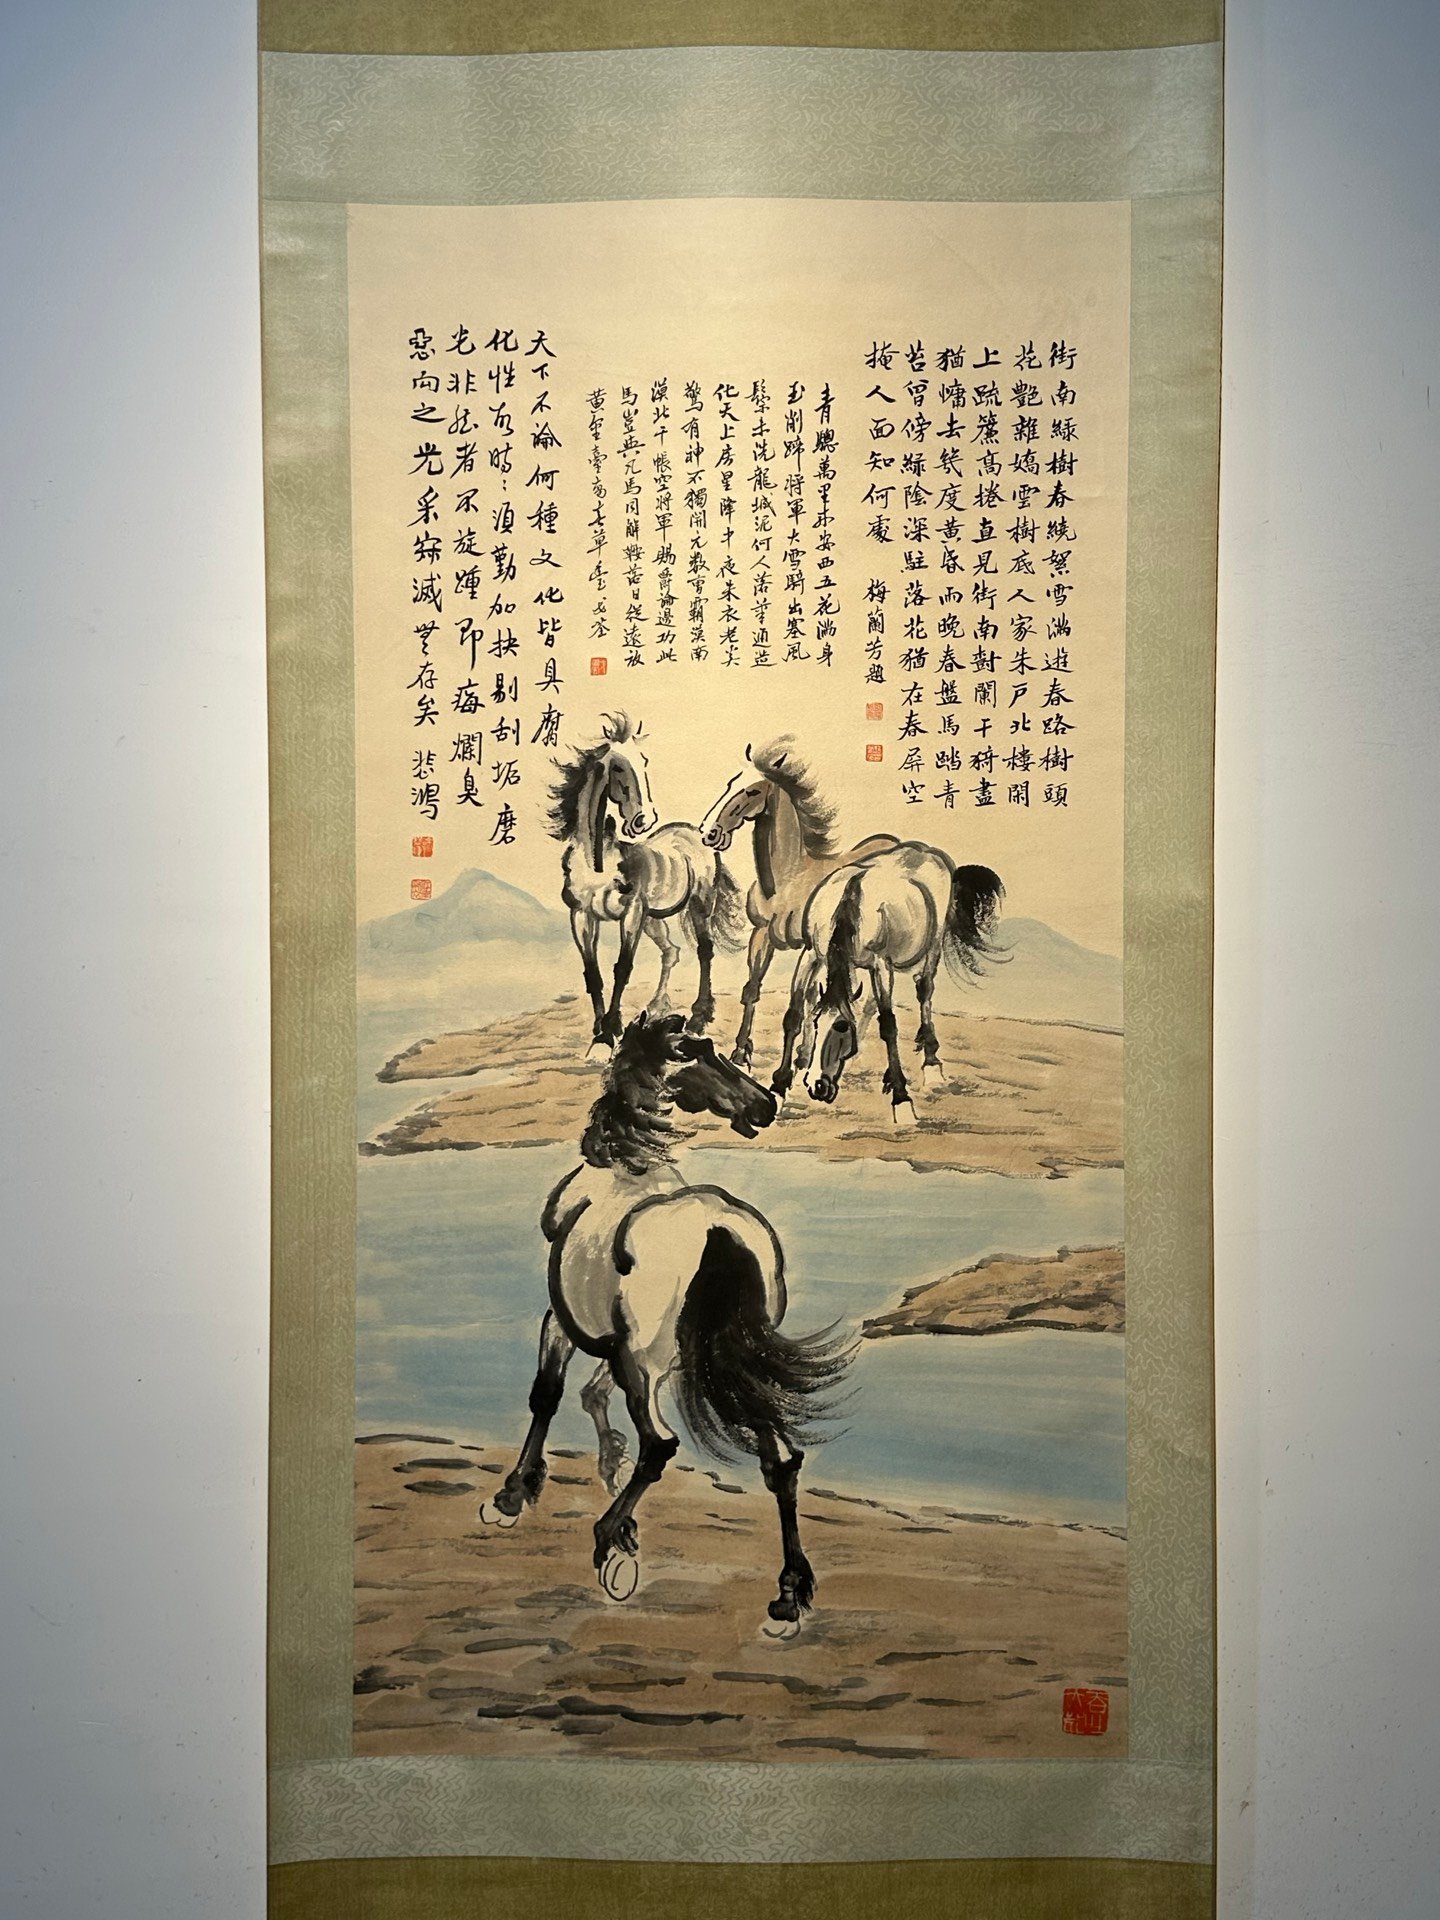 街南綠樹春繞絮雪滿遊春路樹頭
花艷雜嬌雲樹底人家朱戶北樓閑
上疏簾高捲直見街南樹闌干猗盡
猶慵去幾度黃昏雨晚春盤馬踏青
苔曾傍綠陰深駐落花猶在春屏空
掩人面知何處 梅蘭芳題
青驄萬里來安西五花滿身
玉削蹄將軍大雪騎出塞風
鬃未洗龍城泥何人落筆通造
化天上房星降中夜朱衣老奚
驚有神不獨開元數曹霸漠南
漠北千帳空將軍賜爵論邊功此
馬豈與凡馬同解鞍落日從遠放
黃金臺高春草
天下不論何種文化皆具腐
化性故時時須勤加抉剔刮垢磨
光非然者不旋踵即 爛臭
惡向之光采寂滅無存矣 悲鴻